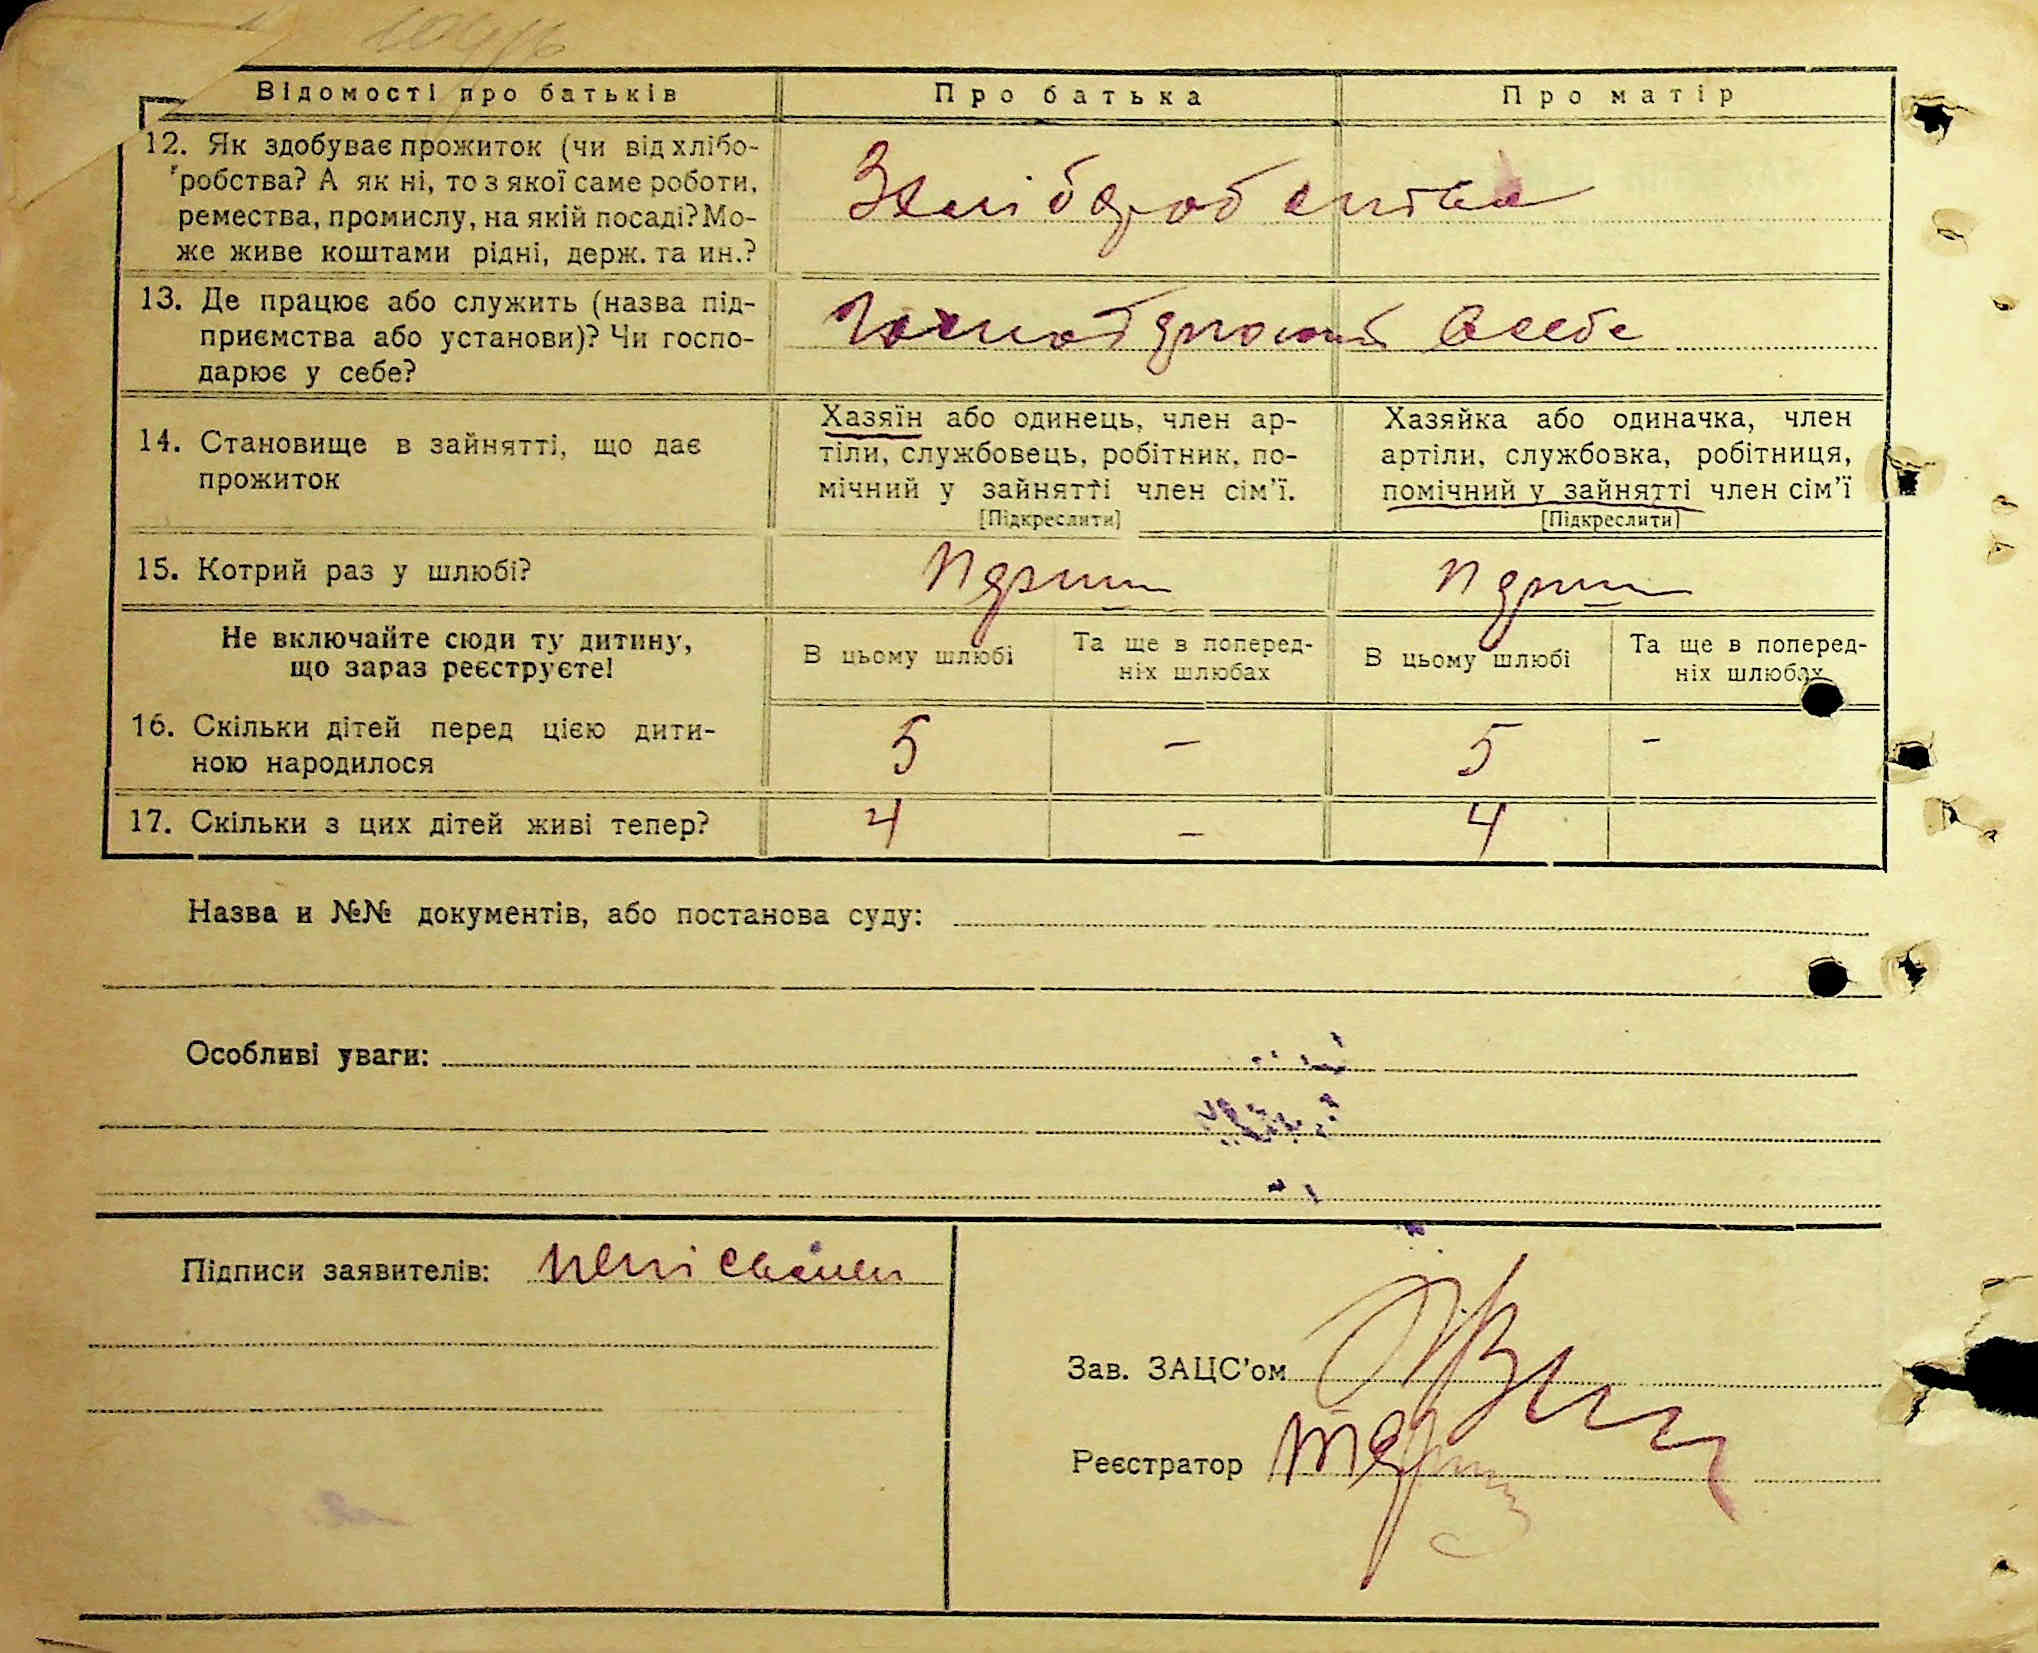 Відомості про батьків
Про батька
Про матір
12. Як здобуває прожиток (чи від хлібо-
робства? А як ні, то з якої саме роботи,
ремества, промислу, на якій посаді? Мо-
же живе коштами рідні, держ. та ин.?
З хліборобства
13. Де працює або служить (назва під-
приємства або установи)? Чи госпо-
дарює у себе?
у себе
14. Становище в зайнятті, що дає
прожиток
Хазяїн або одинець, член ар-
тіли, службовець, робітник, по-
мічний у зайнятті член сім'ї.
[Підкреслити]
Хазяйка або одиначка, член
артіли, службовка, робітниця,
помічний у зайнятті член сім'ї
[Підкреслити]
15. Котрий раз у шлюбі?
Перший
Перший
Не включайте сюди ту дитину,
що зараз реєструєте!
В цьому шлюбі
Та ще в поперед-
ніх шлюбах
В цьому шлюбі
Та ще в поперед-
ніх шлюбах
16. Скільки дітей перед цією дити-
ною народилося
5
-
5
-
17. Скільки з цих дітей живі тепер?
4
-
4
Назва и №№ документів, або постанова суду:
Особливі уваги:
Підписи заявителів:
Зав. ЗАЦС'ом
Реєстратор